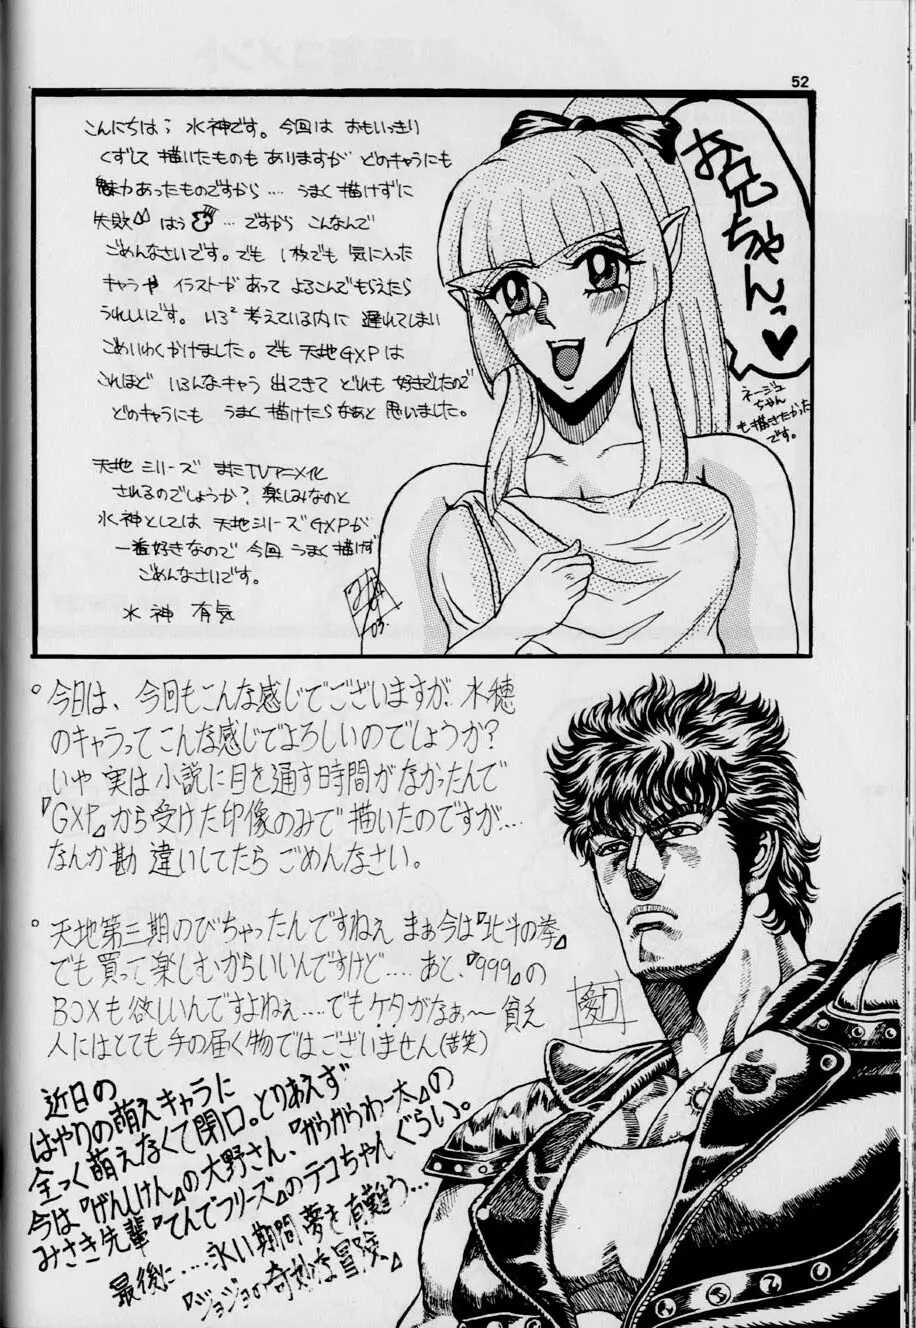 52
こんにちは、水神です。今回は おもいっきり
くずして 描いたものも ありますが どのキャラにも
魅力あったものですから…. うまく 描けずに
失敗 はう …ですから こんなんで
ごめんなさいです。でも 1枚でも 気に入った
キャラや イラストが あって よろこんでもらえたら
うれしいです。いろ²考えている内に 遅れてしまい
ごめいわくかけました。でも 天地GXPは
これほど いろんなキャラ 出てきて どれも 好きでしたので
どのキャラにも うまく 描けたらなぁと 思いました。
天地シリーズ またTVアニメ化
されるのでしょうか？楽しみなのと
水神としては 天地シリーズGXPが
一番好きなので 今回 うまく描けず
ごめんなさいです。
水神 有気
お兄ちゃんっ♥
ネージュ
ちゃん
も描きたかった
です。
。今日は、今回もこんな感じでございますが、水穂
のキャラってこんな感じでよろしいのでしょうか？
いや 実は小説に目を通す時間がなかったんで
『GXP』から受けた印像のみで描いたのですが….
なんか勘違いしてたら ごめんなさい。
。天地第三期のびちゃったんですねえ まぁ今は『北斗の拳』
でも買って楽しむからいいんですけど….. あと、『999』の
BOXも欲しいんですよねぇ….でもケタがなぁ〜 貧乏
人にはとても手の届く物ではございません(苦笑)
近日の
はやりの萌えキャラに
全っく萌えなくて閉口。とりあえず
今は『げんしけん』の大野さん、『がうがうわー太』の
みさき先輩『てんでフリーズ』のテコちゃんぐらい。
最後に….永い期間夢を有難う…
『ジョジョの奇妙な冒険』